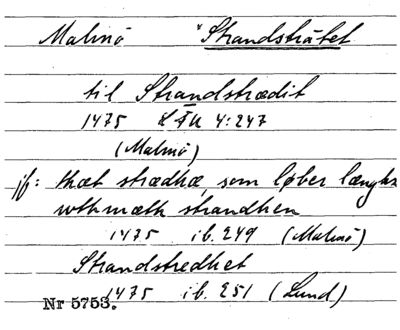 Malmö "Strandsträtet
til Strandstrædit
1475 LÄU 4:247
(Malmö)
jf: thæt strædhæ, som løber længhs
wthmæth strandhen
1475 ib. 249 (Malmö)
Strandstredhet
1475 ib. 251 (Lund)
Nr 5753.